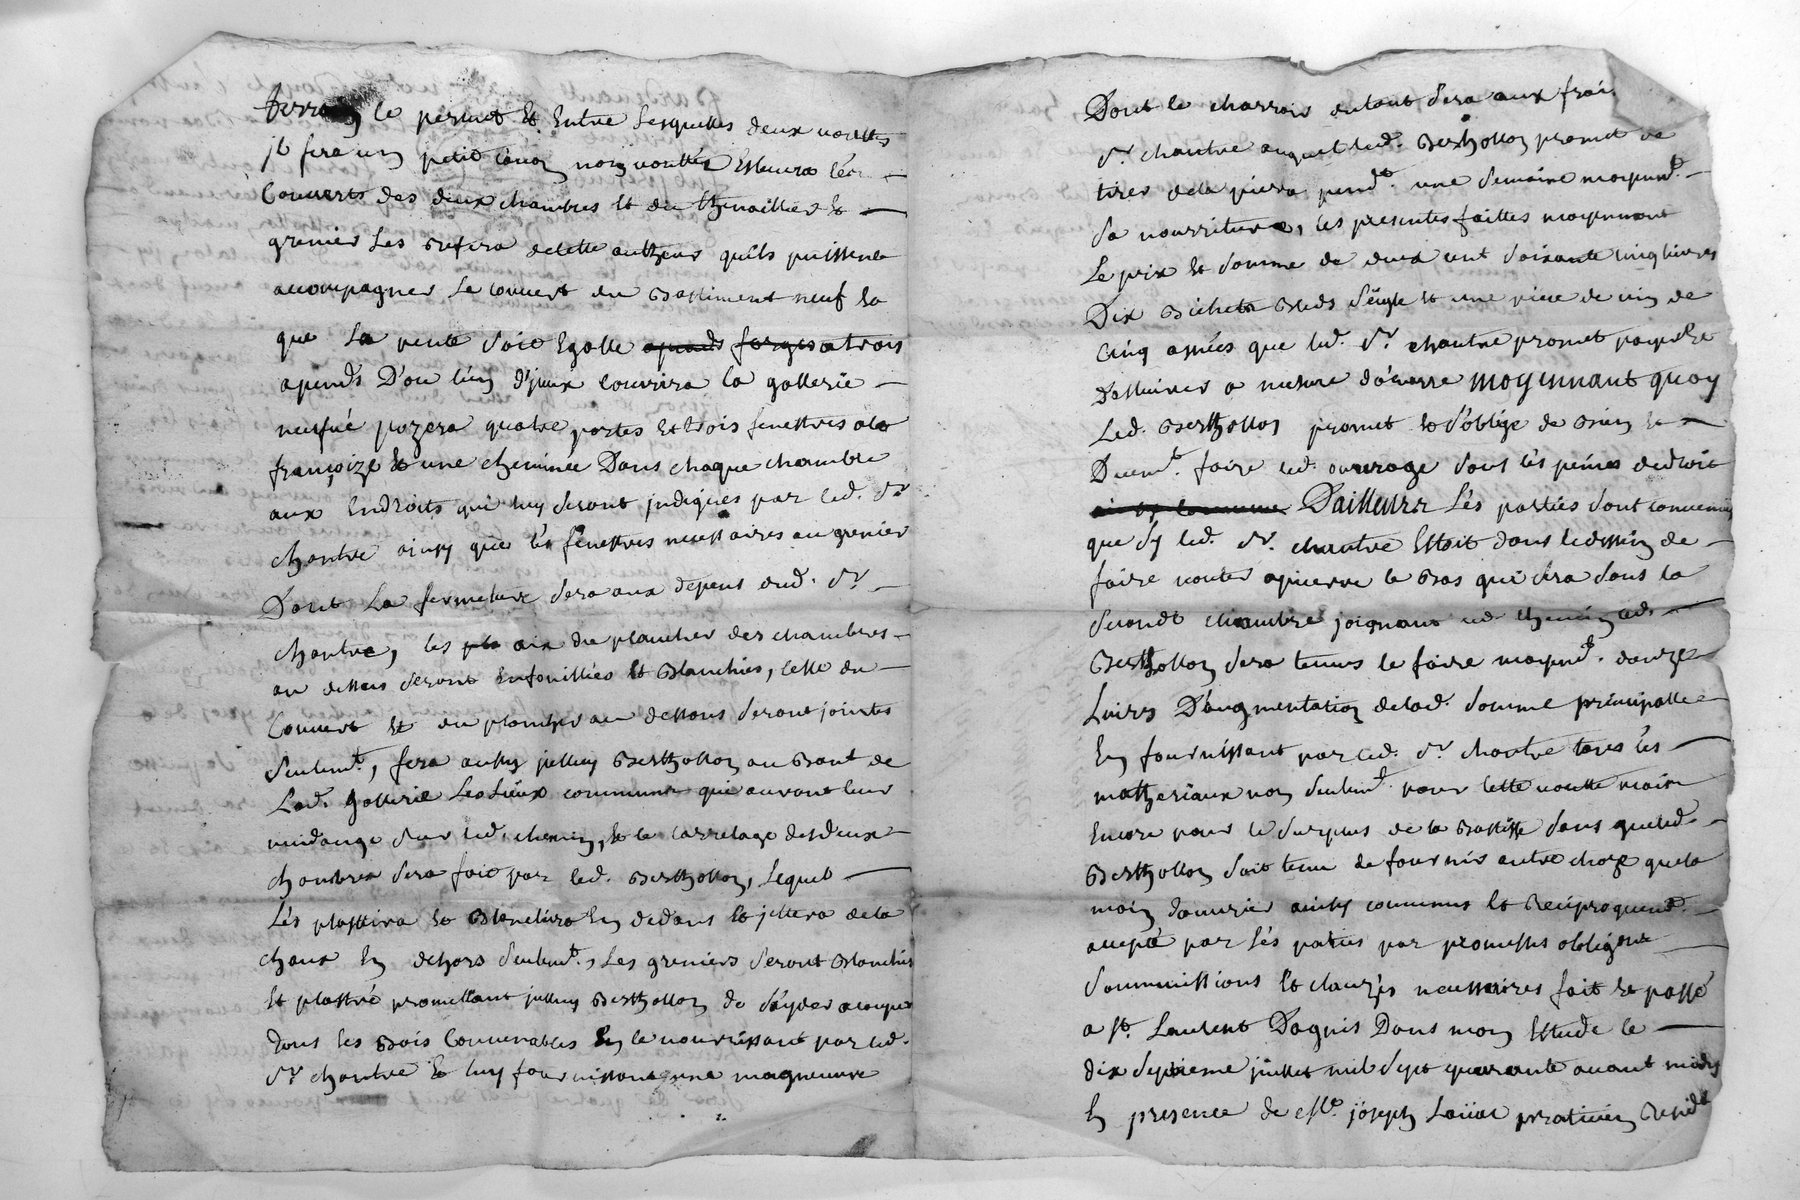 le permet et Entre lesquelles deux voultes
jl fera un petit non voultée Ellevera lés
Couverts des deux chambres et du thenaillier et
grenier les refera de telle autheur qu'ils puissent
accompagner le couvert du Bastiment neuf En
que la pente soit Egalle a trois
apends D'ou l'un d'jceux Couvrira la gallerie
neufve pozera quatre portes et trois fenestres ala
françoize et une cheminée Dans chaque chambre
aux Endroits qui luy seront jndiqués par led. Sr
chantre ainsy que lés fenestres necessaires au grenier
Dont La fermeture sera aux depens dud. Sr
chantre, les aix du plancher des chambres
au dessus seront Enfouillées et Blanchies, celle du
Couvert et du plancher au dessous seront jointes
seulemt, fera aussy jcelluy Berthollon au Bout de
Lad. gallerie Les Lieux communs qui auront leur
vuidange sur led. chemin, et le Carrelage des deux
chambres sera fait par led. Berthollon, Lequel
Lés plastrira et Blanchira En dedans et jettera de la
chaux En dehors seulemt, Les greniers seront Blanchis
et plastré promettant jcelluy Berthollon de s'ayder acouper
tous les Bois Convenables En le nourrissant par led.
Sr chantre et luy fournissant une magneuvre
Dont le charrois entout sera aux frais
Sr chantre auquel led. Berthollon promet de
tirer dela pierre pendt. une semaine moyent.
sa nourriture, les presentes faittes moyennant
Le prix et somme de deux cent soixante cinq livres
Dix Bichets Bleds seigle et une piece de vin de
Cinq annés que led. Sr chantre promet payer et
Dellivrer a mesure d'œuvre moyennant quoy
Led. Berthollon promet et s'oblige de Bien et
Duemt. faire led. ouvrage sous lés peines de droit
Dailleurs Lés parties sont convenües
que sy led. Sr. chantre Estoit dans le dessein de
faire voulter apierre le Bas qui sera sous la
seconde chambre joignant led. chemin, led.
Berthollon sera tenus le faire moyent. douze
Livres D'augmentation de lad. somme principalle
En fournissant par led. Sr chantre tous lés
matheriaux non seulemt. pour cette voulte mais
Encore pour le surplus de la Batisse sans que led.
Berthollon soit tenu de fournir autre choze que la
main d'ouvrier ainsy convenus et Reciproquemt.
accepté par lés parties par promesses obligons
soummissions et clauzes necessaires fait et passé
a St. Laurent Dagnis Dans mon Estude le
dix septieme juillet mil sept quarante avant midy
En presence de Me. joseph praticien Residt